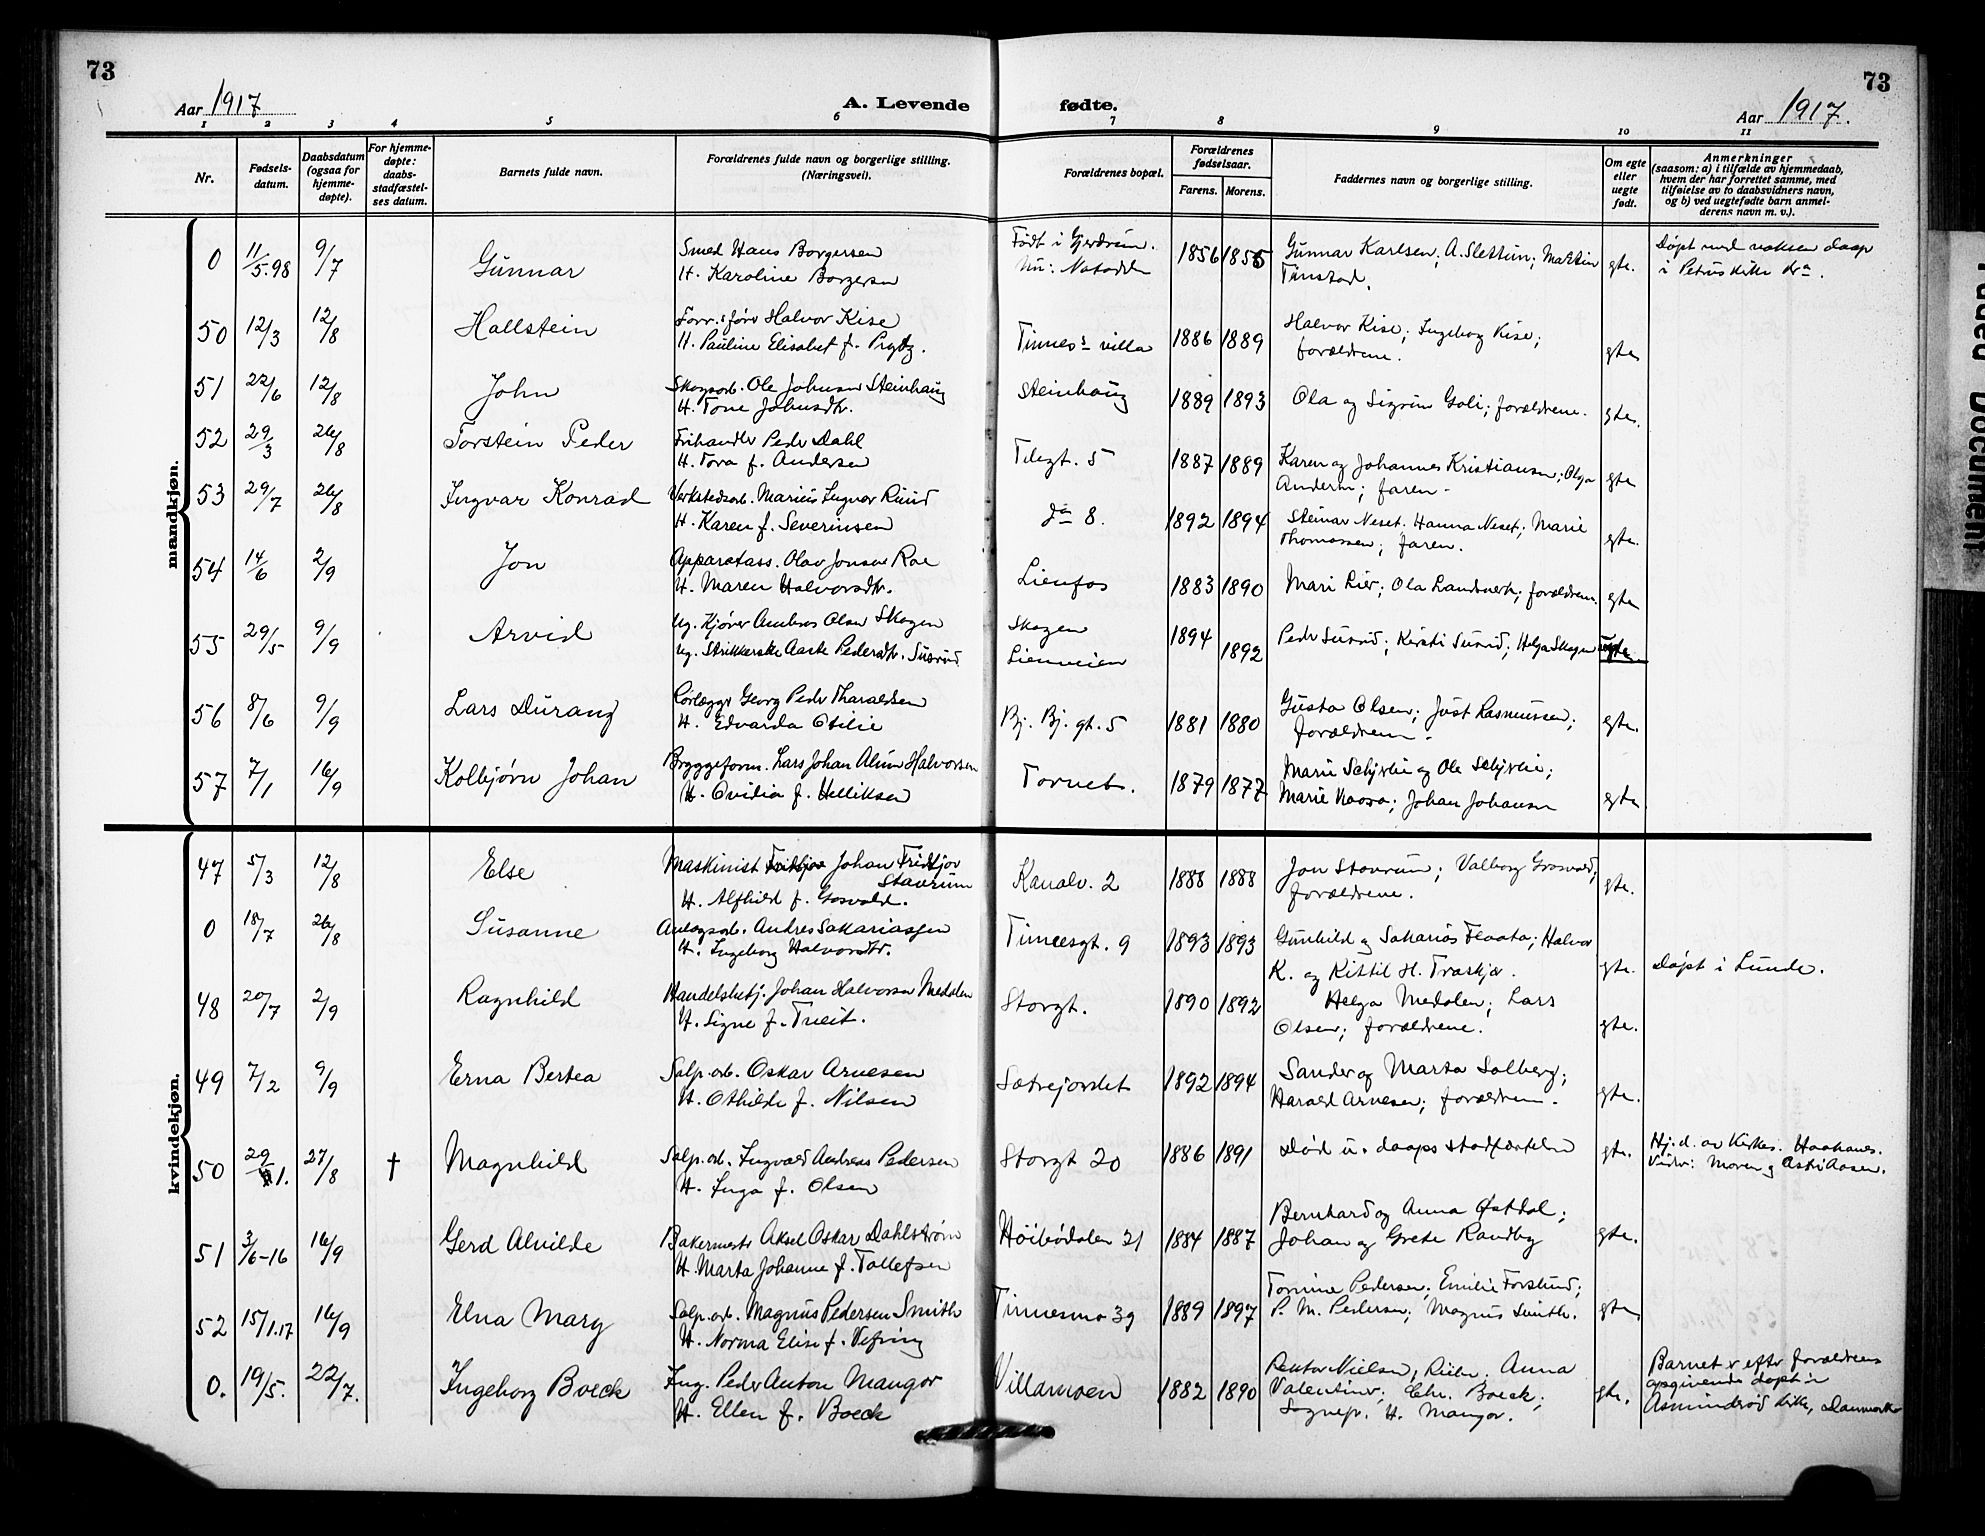 73
73
Aar 1917
A. Levende fødte.
Aar 1917.
1 2 3 4 5 6 7 8 9 10 11
Nr.
Fødsels-
datum.
Daabsdatum
(ogsaa for
hjemme-
døpte).
For hjemme-
døpte:
daabs-
stadfæstel-
ses datum.
Barnets fulde navn.
Forældrenes fulde navn og borgerlige stilling.
(Næringsvei).
Forældrenes bopæl.
Forældrenes
fødselsaar.
Farens. Morens.
Faddernes navn og borgerlige stilling.
Om egte
eller
uegte
født.
Anmerkninger
(saasom: a) i tilfælde av hjemmedaab,
hvem der har forrettet samme, med
tilføielse av to daabsvidners navn,
og b) ved uegtefødte barn anmel-
derens navn m. v.).
mandkjøn.
0 11/5.98 9/7 Gunnar Smed Hans Borgersen Født i Gjerdrum. 1856 1855 Gunnar Karlsen; A. Slettum; Martin gte. Døpt med voksen daap
H. Karoline Borgersen Nu: Notodden Tinstad. i Petruskirke
50 12/3 12/8 Hallstein Forr.fører Halvor Kise Tinnes villa 1886 1889 Halvor Kise; Ingeborg Kise; gte
H. Pauline Elisabet f. Prytz. forældrene.
51 22/6 12/8 John Skogsarb. Ole Johnsen Steinhaug Steinhaug 1889 1893 Ola og Sigrun Goli; forældrene. gte.
H. Tone Johnsdtr.
52 29/3 26/8 Torstein Peder Frihandler Peder Dahl Telegt. 5 1887 1889 Karen og Johannes Kristiansen; Olga gte
H. Tora f. Andersen Andersen; faren.
53 29/7 26/8 Ingvar Konrad Verkstedsarb. Marius Ingvar Ruud do 8. 1892 1894 Steinar Neset. Hanna Neset; Marie gte.
H. Karen f. Severinsen Thomassen; faren.
54 14/6 2/9 Jon Apparatass. Olav Jonsen Roe Lienfos 1883 1890 Mari Lier; Ola Landsverk; forældrene. gte
H. Maren Halvorsdtr.
55 29/5 9/9 Arvid Ug. Kjører Ambros Olsen Skogen Skogen 1894 Peder Susrud; Kirsti Susrud; Helga Skogen uegte
Ug. Strikkerske Aaste Pedersdtr. Susrud Lienveien 1892
56 8/6 9/9 Lars Durang Rørlægger Georg Peder Tharaldsen Bj. Bj. gt. 5 1881 1880 Gusta Olsen; Just Rasmussen; gte.
H. Edvarda Otilie forældrene.
57 7/1 16/9 Kolbjørn Johan Bryggeform. Lars Johan Alum Halvorsen Tornet. 1879 1877 Marie Schjølie og Ole Schjølie; gte
H. Ovidia f. Helliksen Marie Moosa; Johan Johansen
kvindekjøn.
47 5/3 12/8 Else Maskinist Johan Fridtjov Kanalv. 2 1888 1888 Jon Stavrum; Valborg Grosvold; gte.
Stavrum forældrene.
H. Alfhild f. Gosvold.
0 18/7 26/8 Susanne Anlægsarb. Andres Sakariassen Tinnesgt. 9 1893 1893 Gunhild og Sakarias Flaata; Halvor gte. Døpt i Lunde.
H. Ingeborg Halvorsdtr. K. og Kittil H. Træskja.
48 20/7 2/9 Ragnhild Handelsbetj. Johan Halvorsen Medalen Storgt. 1890 1892 Helga Medalen; Lars gte.
H. Signe f. Tveit. Olsen; forældrene.
49 7/2 9/9 Erna Bertea Salp. arb. Oskar Arnesen Sætrejordet 1892 1894 Sander og Marta Solberg; gte.
H. Othilde f. Nilsen Harald Arnesen; forældrene.
50 29/1. 27/8 † Magnhild Salp. arb. Ingvald Andreas Pedersen Storgt 20 1886 1891 Død u. daaps stadfæstelse gte. Hj. d. av Kirkes. Haakanes.
H. Inga f. Olsen Vidner: Moren og Aasen.
51 3/6-16 16/9 Gerd Alvilde Bakermester Aksel Oskar Dahlstrøm Høibødalen 21 1884 1887 Bernhard og Anna Østdal; gte.
H. Marta Johanne f. Tollefsen Johan og Grete Randby
52 15/1.17 16/9 Elna Mary Salp. arb. Magnus Pedersen Smith Tinnesmo 39 1889 1897 Tomine Pedersen; Emilie Forslund; gte
H. Norma Elise f. Vefring P. M. Pedersen; Magnus Smith.
0. 19/5. 22/7. Ingeborg Boeck Ing. Peder Anton Mangor Villamoen 1882 1890 Rektor Nielsen; Anna gte. Barnet er efter forældrenes
H. Ellen f. Boeck Valentiner; Chr. Boeck; opgivende døpt i
Sognepr. H. Mangor. Asminderød kirke, Danmark